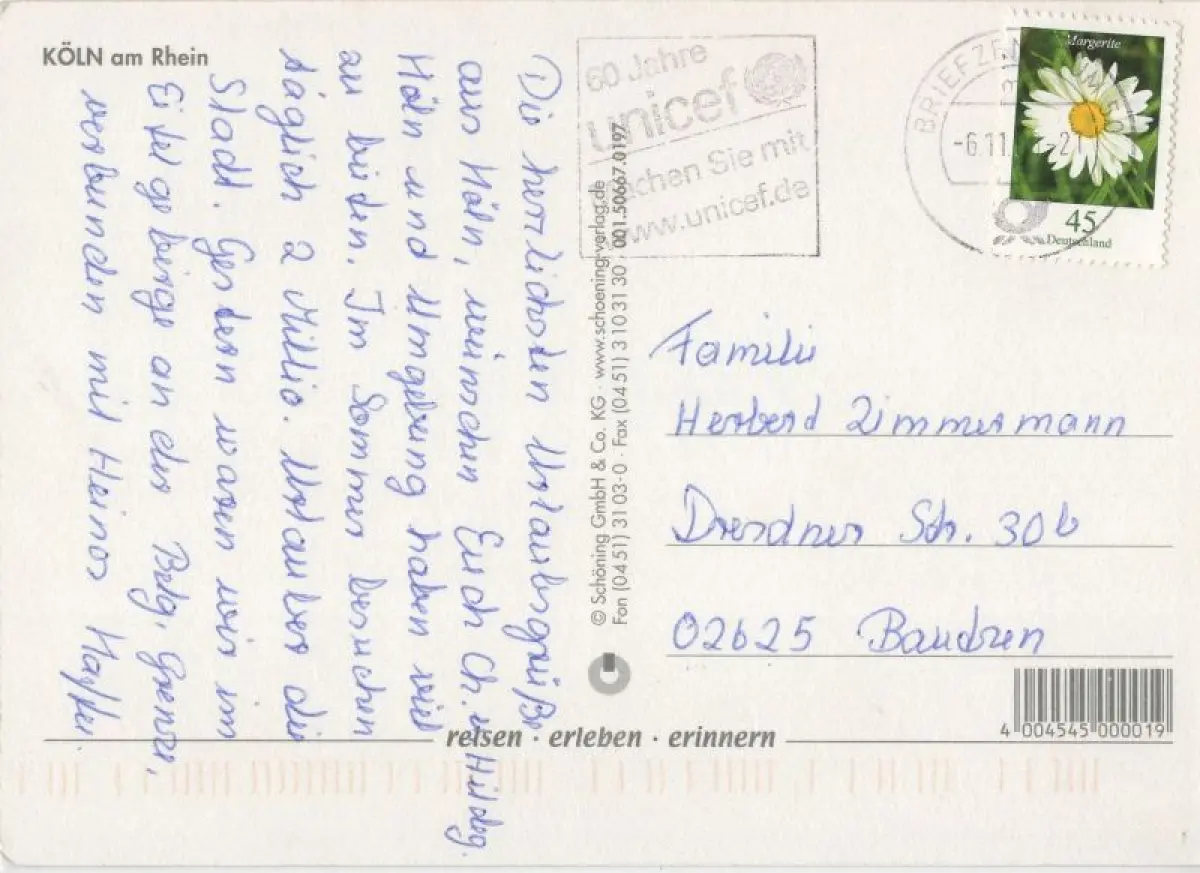 KÖLN am Rhein
Die herrlichsten Urlaubsgrüße
aus Köln, wünschen Euch Ch. u Hildeg.
Köln und Umgebung haben viel
zu bieten. Im Sommer besuchen
täglich 2 Millio. Urlauber die
Stadt. Gestern waren wir im
Eifelgebirge an der Belg. Grenze,
verbunden mit Heinos Kaffee.
60 Jahre
unicef
machen Sie mit
www.unicef.de
© Schöning GmbH & Co. KG · www.schoening-verlag.de
Fon (04 51) 31 03-0 · Fax (04 51) 310 31 30 · 001.50667.0197
BRIEFZEN
-6.11.
Margerite
45
Deutschland
Familie
Herberd Zimmermann
Dresdner Str. 30b
02625 Baudzen
4 004545 000019
reisen · erleben · erinnern